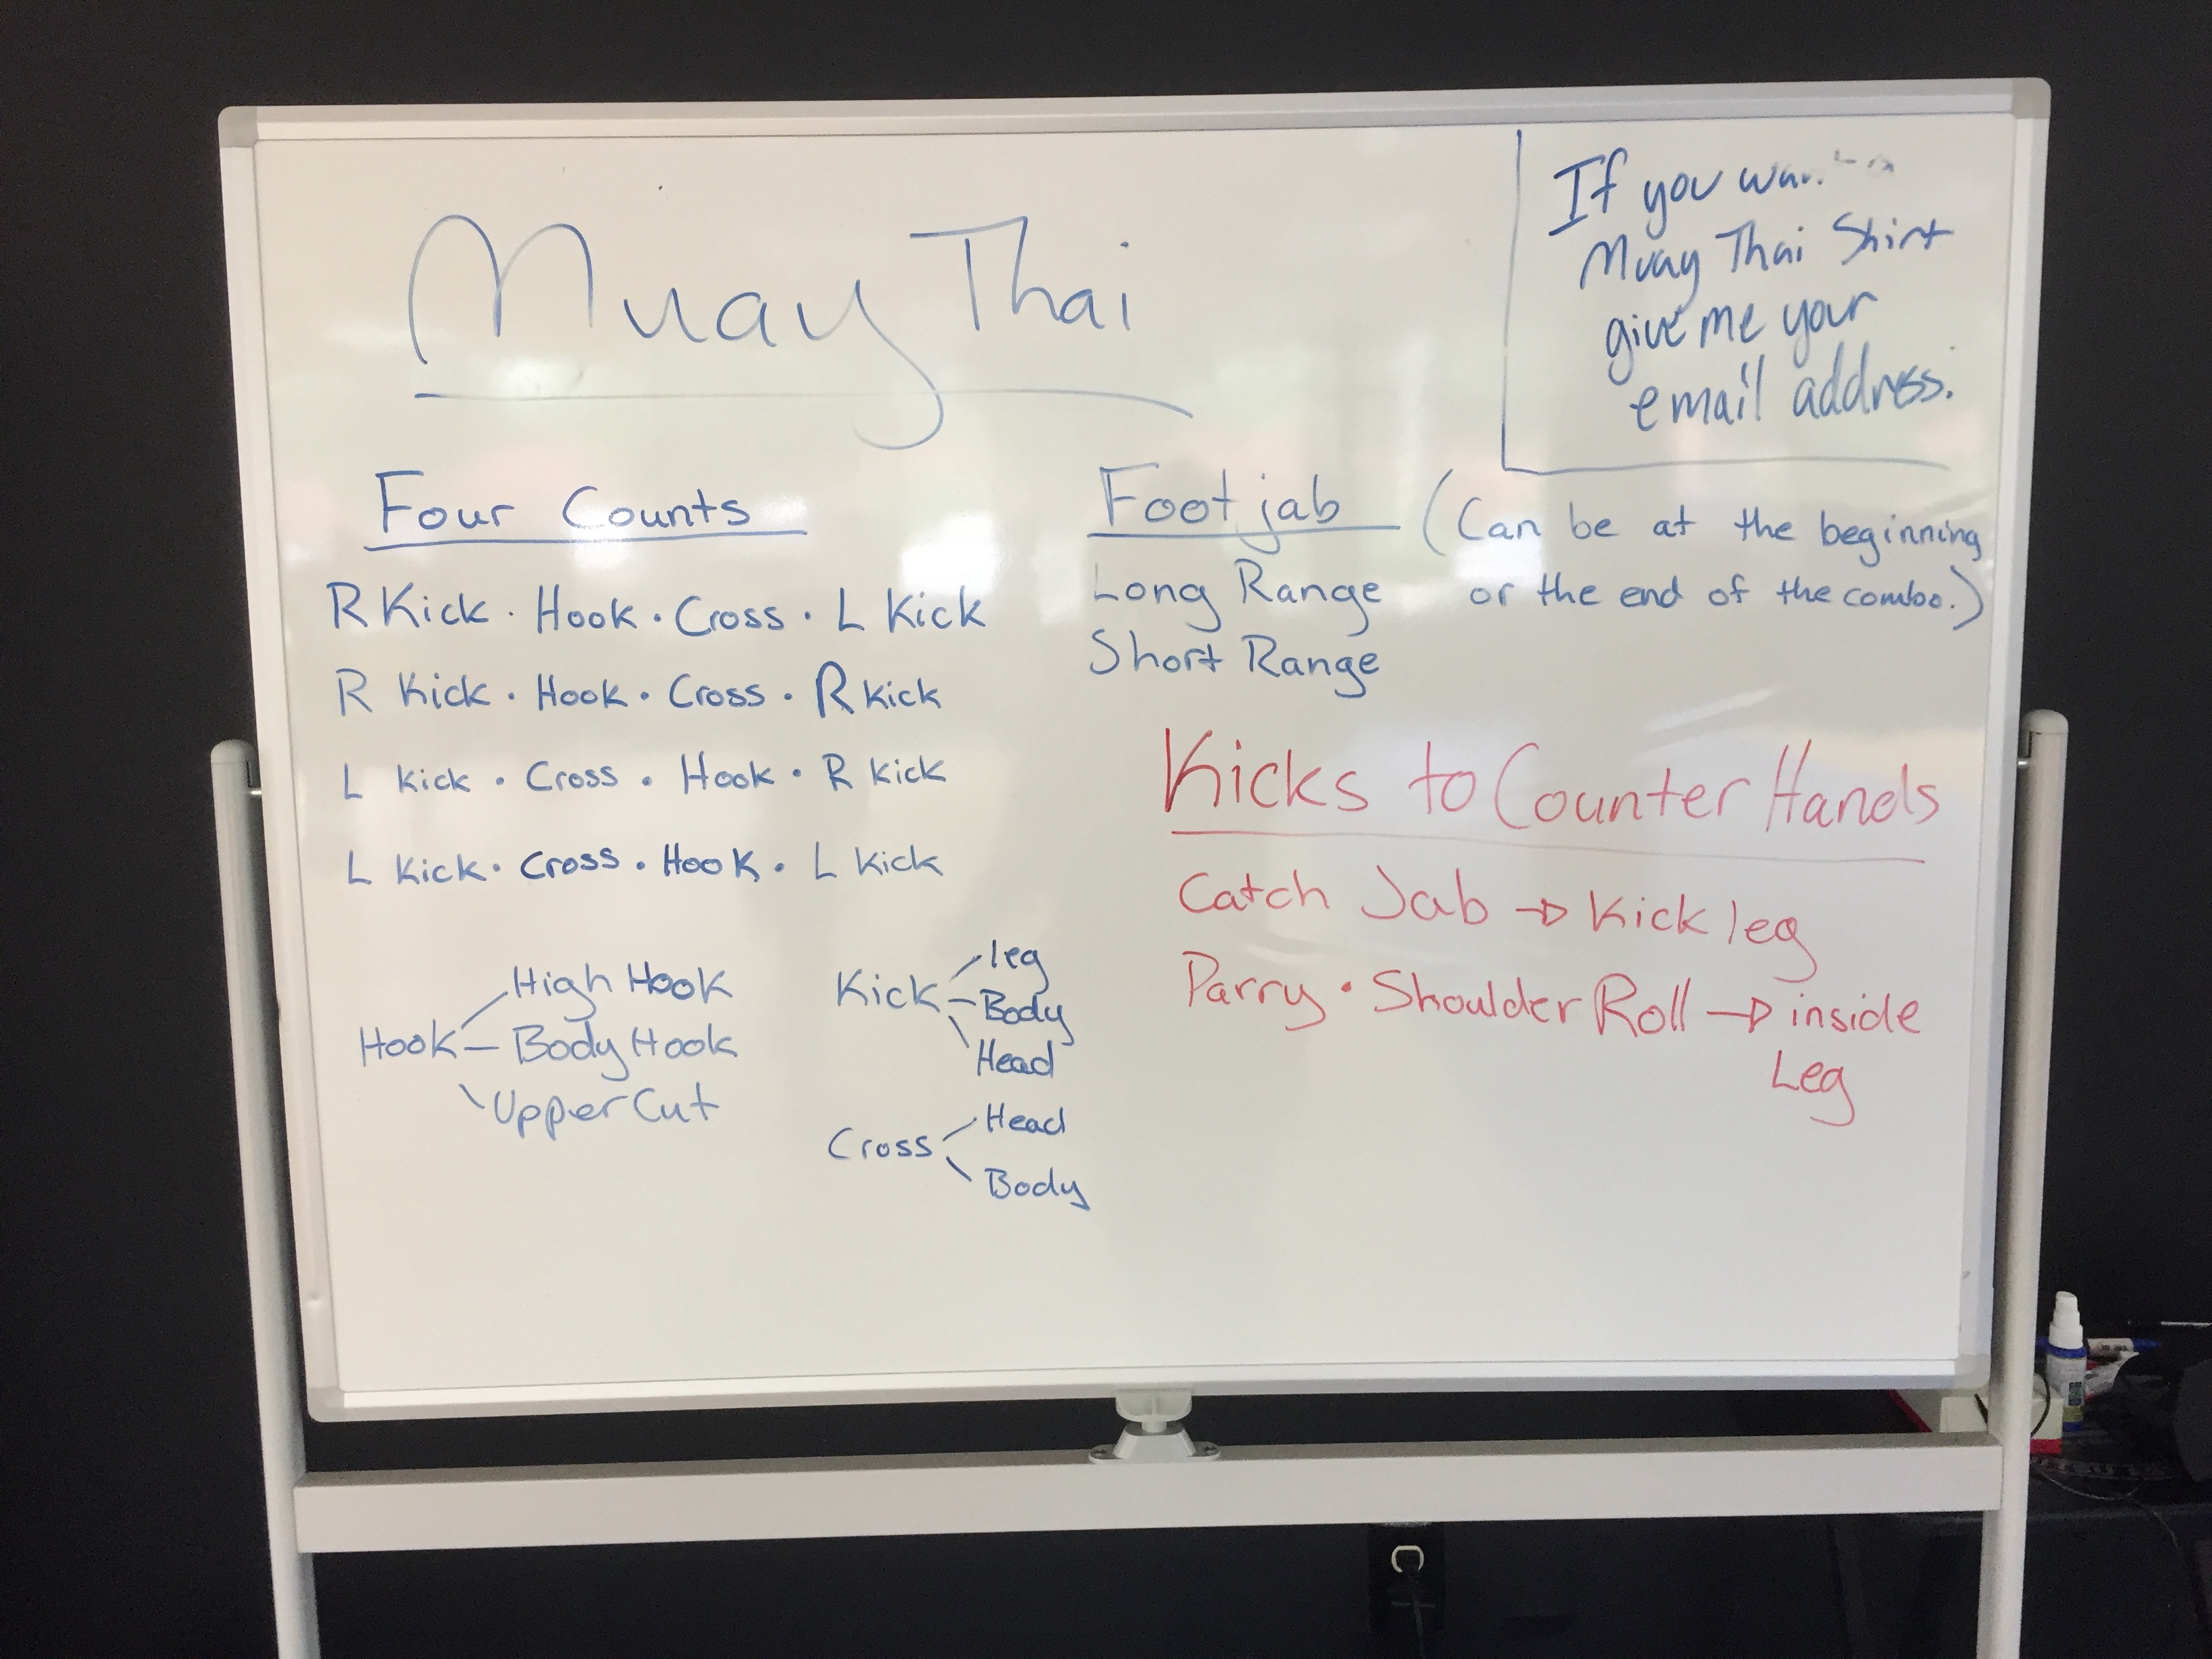 Muay Thai
If you
Muay Thai Shirt
give me your
email address.
Four Counts
R Kick · Hook · Cross · L Kick
R Kick · Hook · Cross · R Kick
L Kick · Cross · Hook · R Kick
L Kick · Cross · Hook · L Kick
Hook
High Hook
Body Hook
Upper Cut
Kick
leg
Body
Head
Cross
Head
Body
Foot jab (Can be at the beginning
or the end of the combo.)
Long Range
Short Range
Kicks to Counter Hands
Catch Jab → Kick leg
Parry · Shoulder Roll → inside
Leg